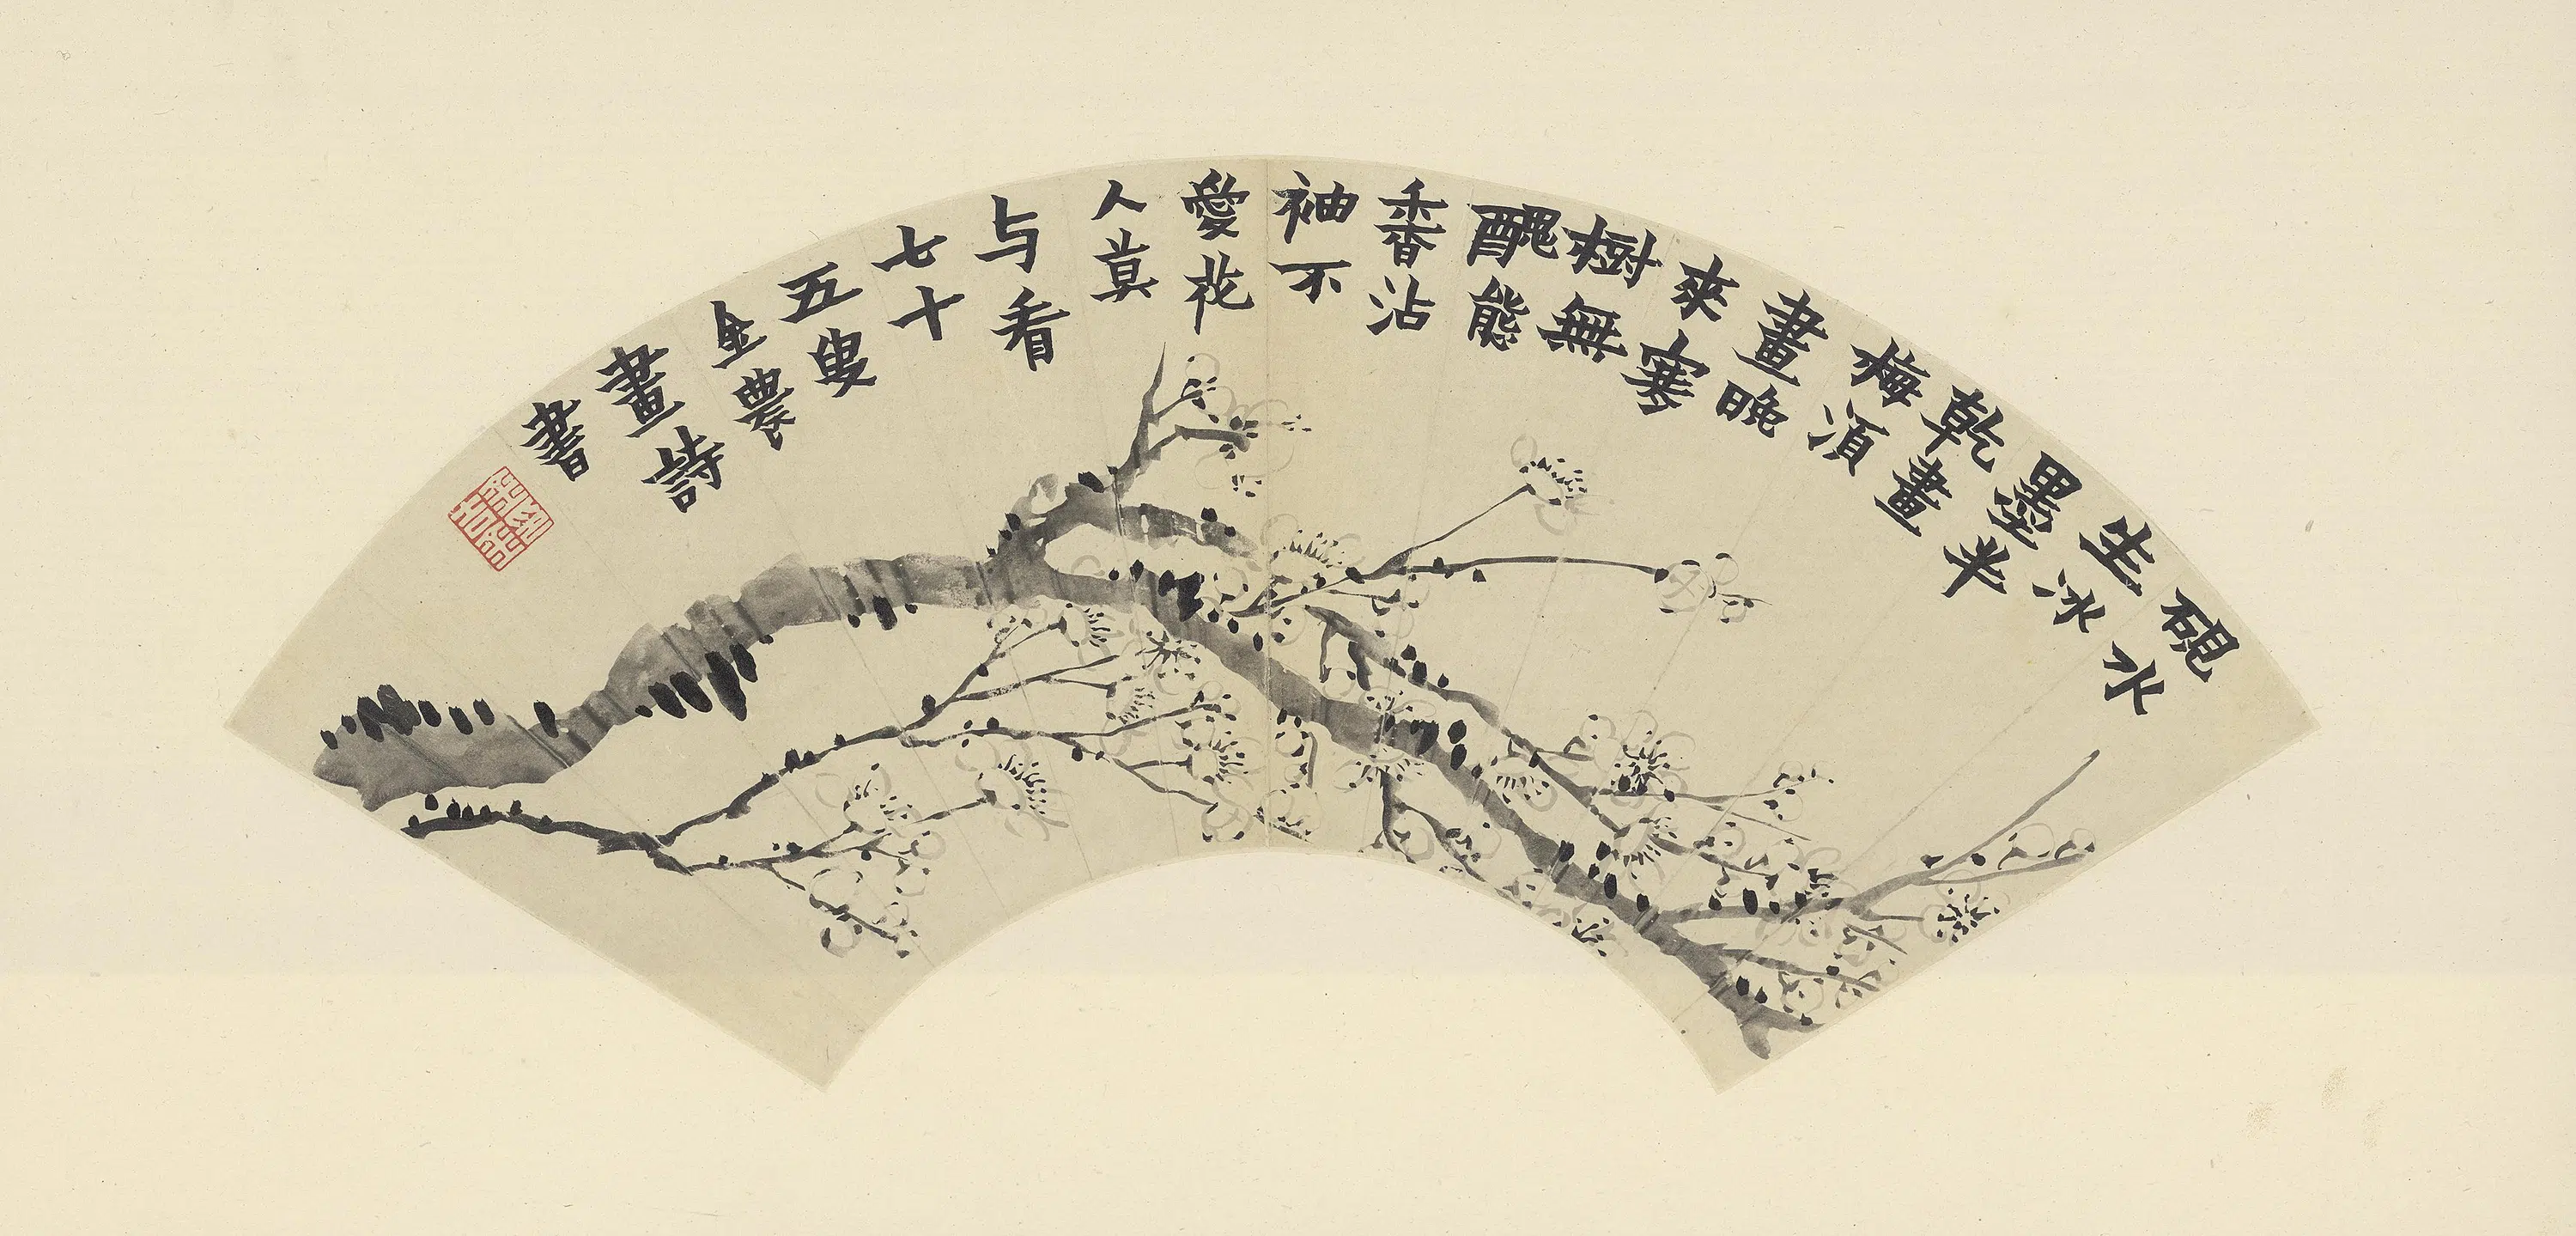 硯水
生冰
墨半
乾畫
梅湏
畫晚
來寒
樹無
醜態
香沾
袖不
愛花
人莫
与看
七十
五叟
金農
畫詩
書